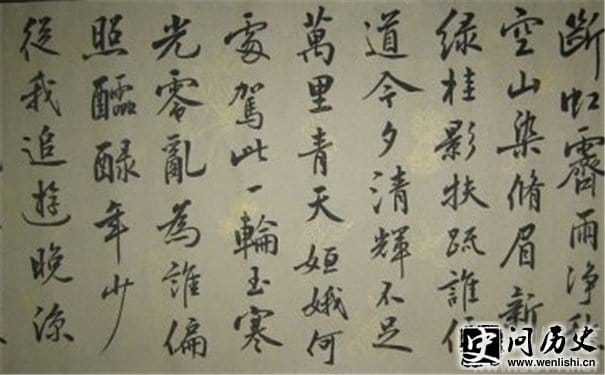 斷虹霽雨淨
空山染脩眉新
綠桂影扶疏誰
道今夕清輝不足
萬里青天姮娥何
處駕此一輪玉寒
光零亂為誰偏
照醽醁年少
從我追遊晚涼
问历史
www.wenlishi.com